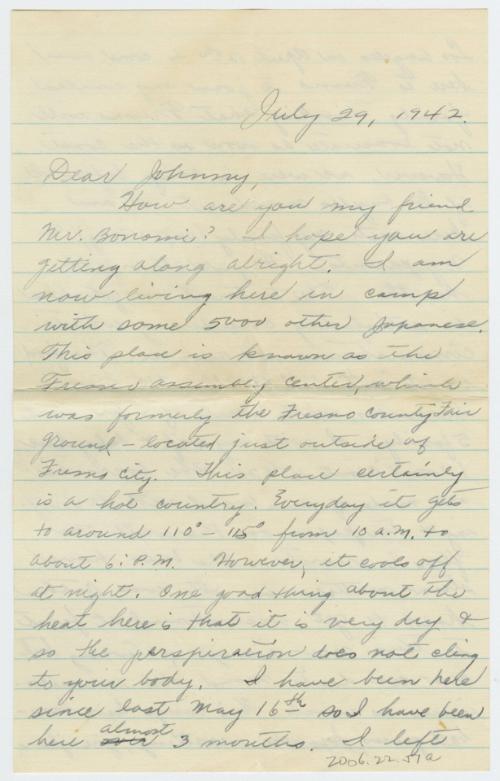 July 29, 1942.
Dear Johnny,
How are you my friend
Mr. Bonomi? I hope you are
getting along alright. I am
now living here in camp
with some 5000 other Japanese.
This place is known as the
Fresno assembly center, which
was formerly the Fresno County Fair
ground, – located just outside of
Fresno City. This place certainly
is a hot country. Everyday it gets
to around 110° – 115° from 10 A.M. to
about 6: P.M. However, it cools off
at night. One good thing about the
heat here is that it is very dry &
so the perspiration does not cling
to your body. I have been here
since last May 16th so I have been
here almost 3 months. I left
2006.22.51a